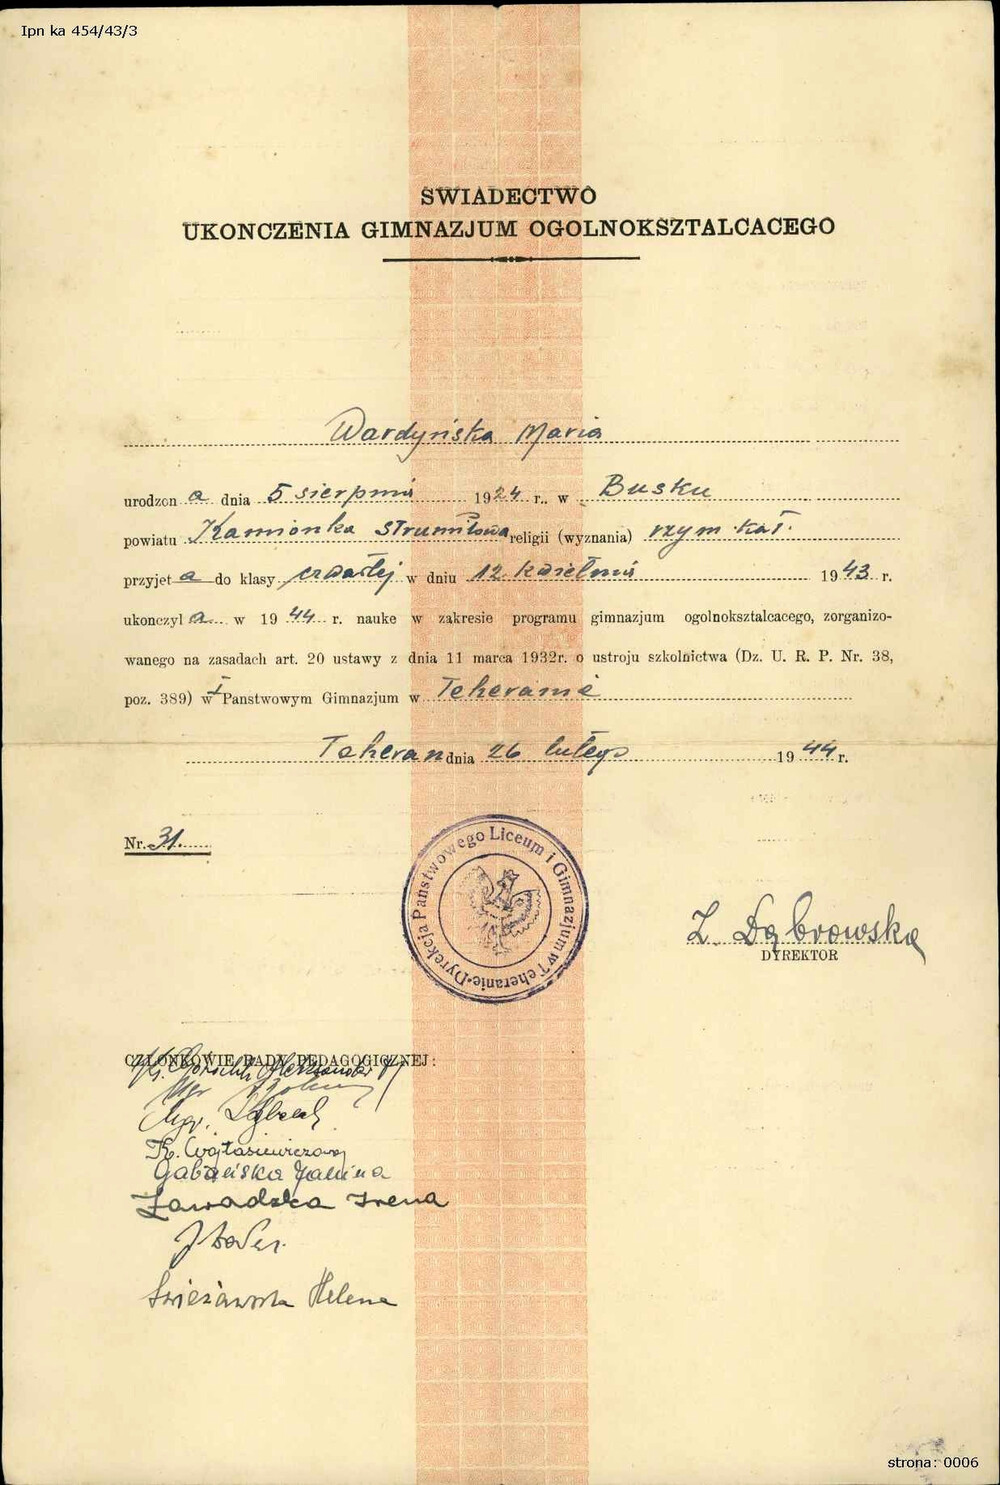 Ipn ka 454/43/3
SWIADECTWO
UKONCZENIA GIMNAZJUM OGOLNOKSZTALCACEGO
Wardyńska Maria
urodzon a dnia 5 sierpnia 1924 r. w Busku
powiatu Kamionka Strumiłowa religii (wyznania) rzym. kat.
przyjet a do klasy czwartej w dniu 12 kwietnia 1943 r.
ukonczyl a w 1944 r. nauke w zakresie programu gimnazjum ogolnoksztalcacego, zorganizo-
wanego na zasadach art. 20 ustawy z dnia 11 marca 1932r. o ustroju szkolnictwa (Dz. U. R. P. Nr. 38,
poz. 389) w I Panstwowym Gimnazjum w Teheranie
Teheran dnia 26 lutego 1944 r.
Nr. 31.
Dyrekcja Państwowego Liceum i Gimnazjum w Teheranie
Z. Dąbrowska
DYREKTOR
CZLONKOWIE RADY PEDAGOGICZNEJ:
Mgr
Mgr.
K. Wojtasiewiczowa
Gabańska Janina
Zawadzka Irena
Świeżawska Helena
strona: 0006